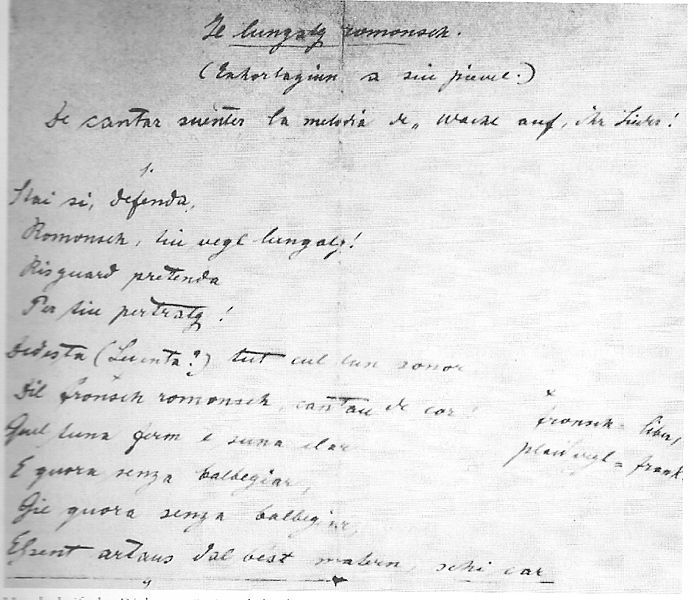 Il lungatg romonsch.
(Exhortaziun a siu pievel.)
De cantar suenter la melodia de „ Wache auf, ihr Lieder!
1.
Stai si, defenda,
Romonsch, tiu vegl lungatg!
Risguard pretenda
Per tiu pertratg!
Dedesta (Luenta?) tut cul tun sonor
Dil fronsch romonsch, cantau de cor!
Quel tuna ferm e suna clar
E quora senza balbegiar,
Gie quora senza balbegiar,
Essent artaus dal vest matern, schi car
x
fronsch = liber,
plaid vegl = frank.